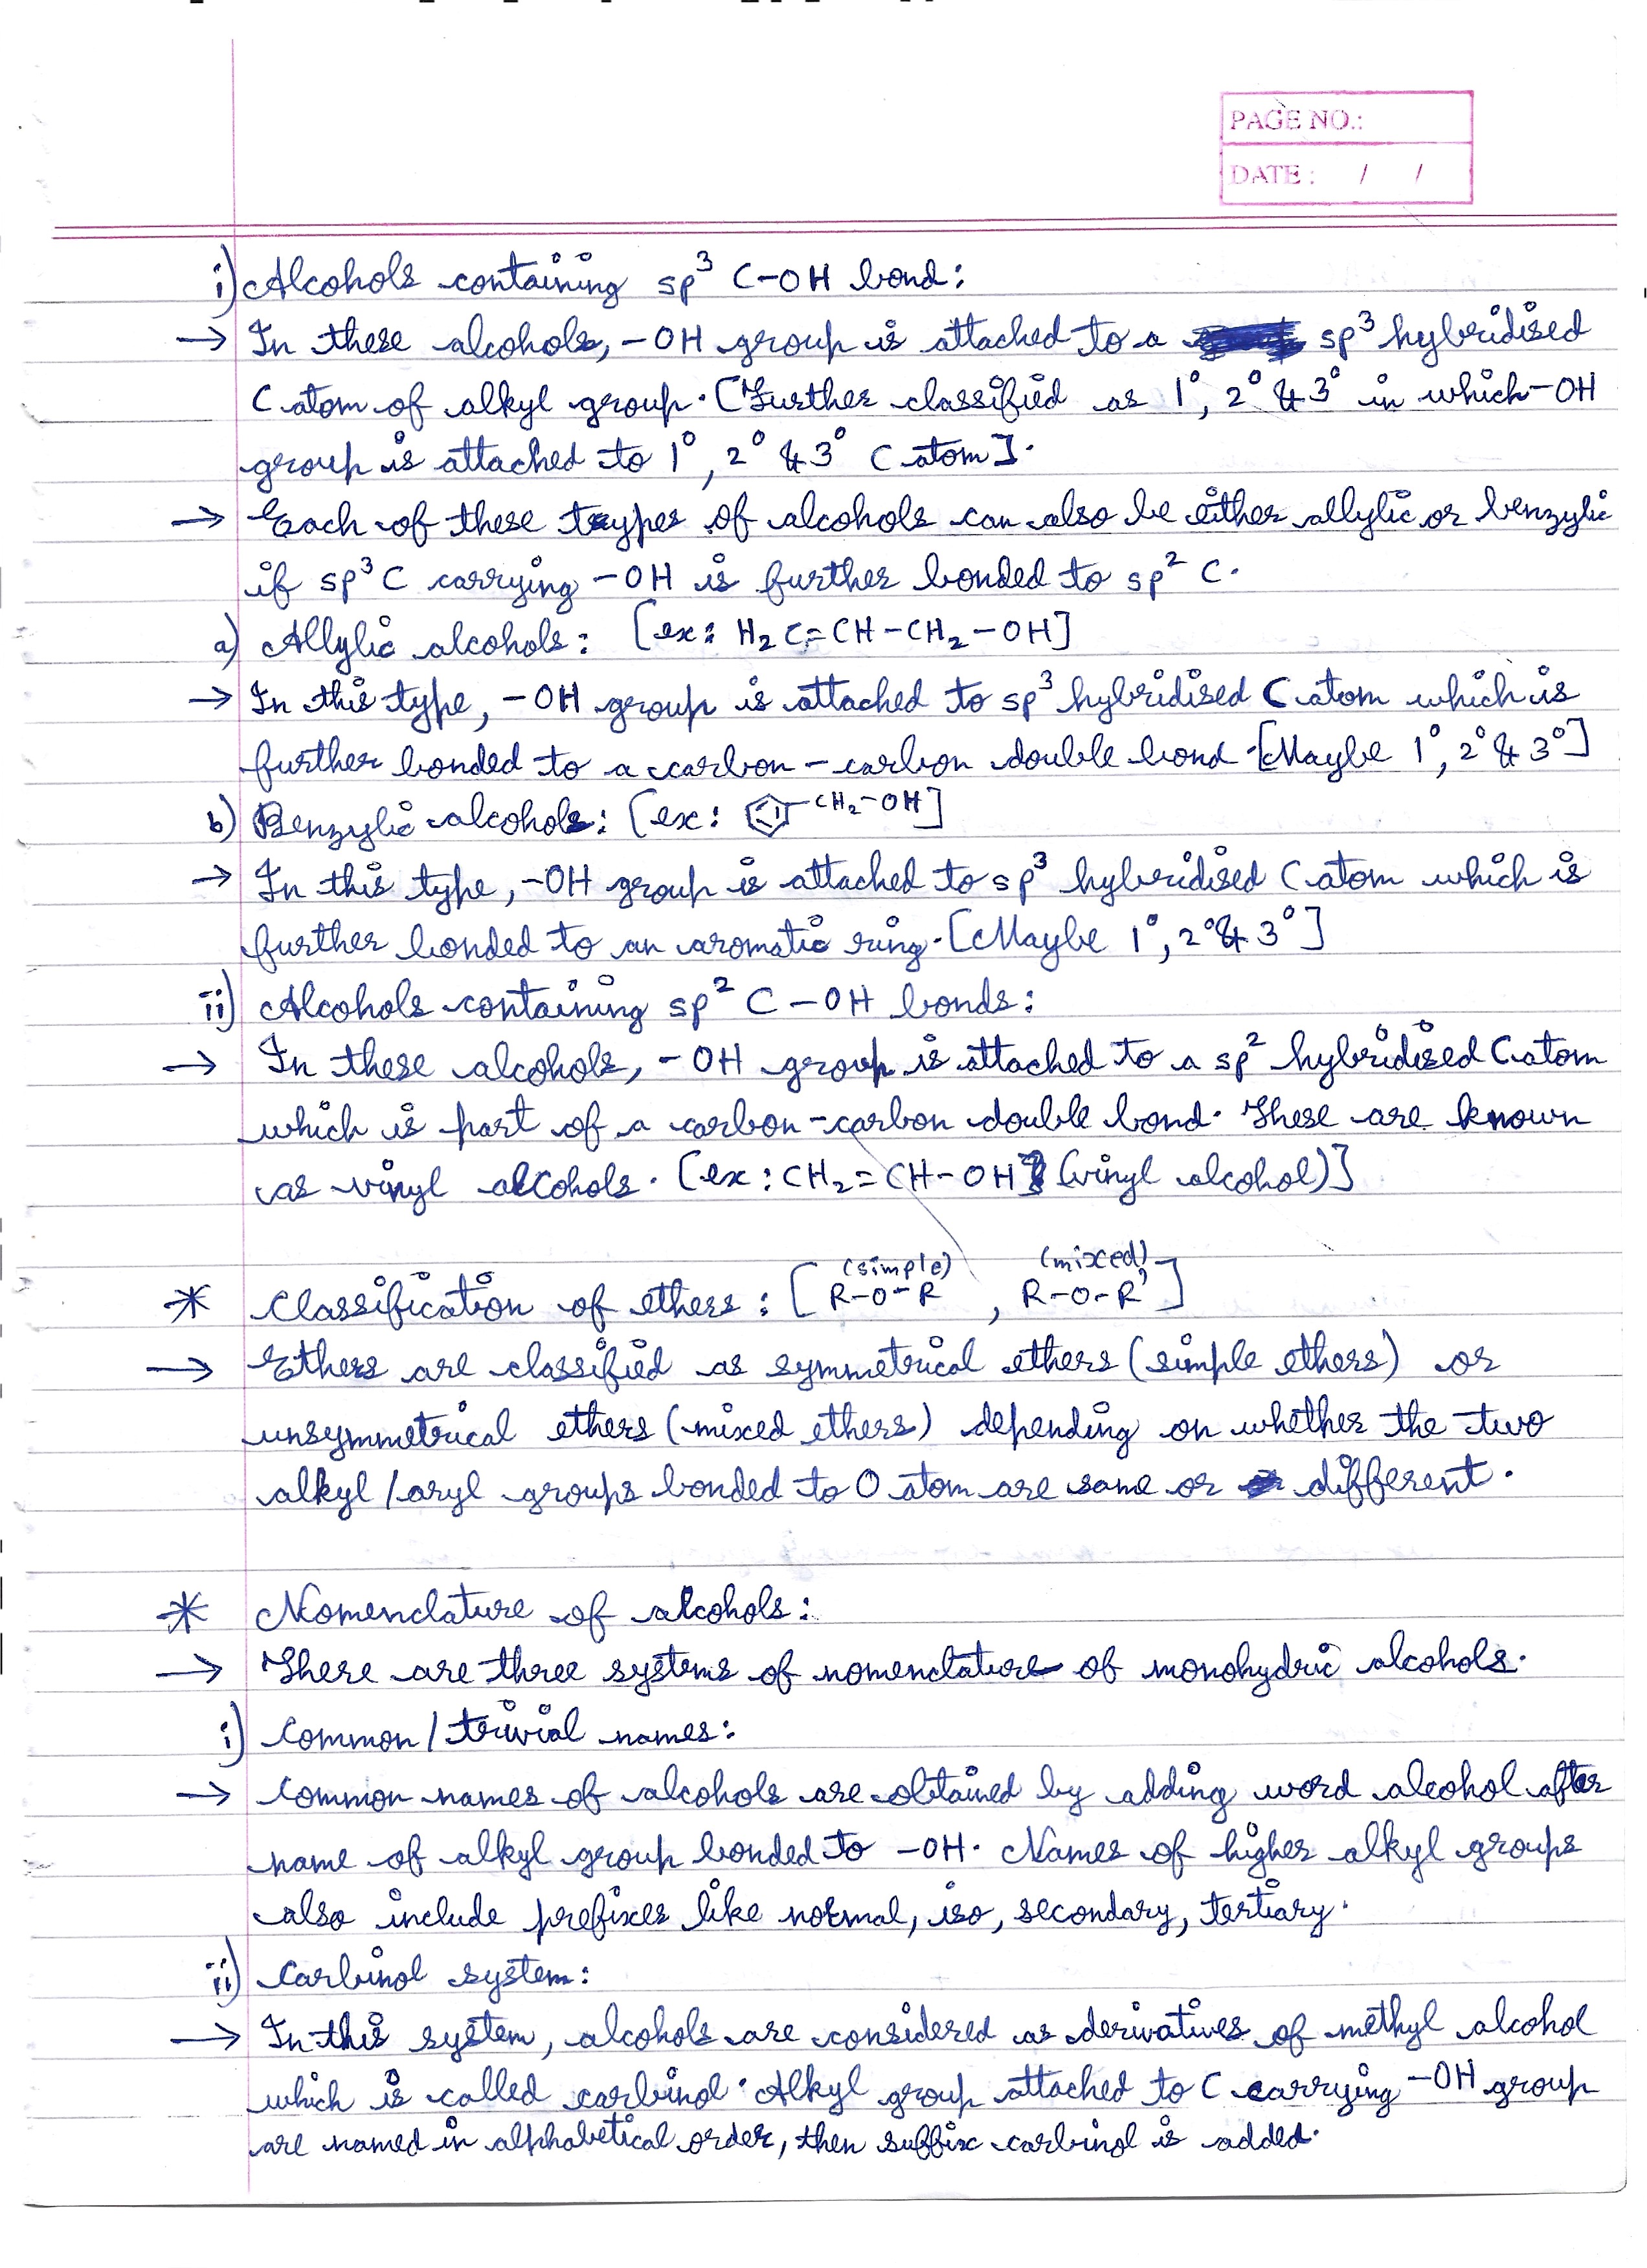 PAGE NO.:
DATE : / /
i) Alcohols containing sp³ C-OH bond:
→ In these alcohols, -OH group is attached to a sp³ hybridised
C atom of alkyl group. [Further classified as 1°, 2° & 3° in which -OH
group is attached to 1°, 2° & 3° C atom].
→ Each of these types of alcohols can also be either allylic or benzylic
if sp³ C carrying -OH is further bonded to sp² C.
a) Allylic alcohols: [ex: H₂C=CH-CH₂-OH]
→ In this type, -OH group is attached to sp³ hybridised C atom which is
further bonded to a carbon-carbon double bond. [Maybe 1°, 2° & 3°]
b) Benzylic alcohols: [ex: CH₂-OH]
→ In this type, -OH group is attached to sp³ hybridised C atom which is
further bonded to an aromatic ring. [Maybe 1°, 2° & 3°]
ii) Alcohols containing sp² C-OH bonds:
→ In these alcohols, -OH group is attached to a sp² hybridised C atom
which is part of a carbon-carbon double bond. These are known
as vinyl alcohols. [ex: CH₂=CH-OH (vinyl alcohol)]
(simple) (mixed)
* Classification of ethers: [R-O-R, R-O-R']
→ Ethers are classified as symmetrical ethers (simple ethers) or
unsymmetrical ethers (mixed ethers) depending on whether the two
alkyl/aryl groups bonded to O atom are same or different.
* Nomenclature of alcohols:
→ There are three systems of nomenclature of monohydric alcohols.
i) Common/trivial names:
→ Common names of alcohols are obtained by adding word alcohol after
name of alkyl group bonded to -OH. Names of higher alkyl groups
also include prefixes like normal, iso, secondary, tertiary.
ii) Carbinol system:
→ In this system, alcohols are considered as derivatives of methyl alcohol
which is called carbinol. Alkyl group attached to C carrying -OH group
are named in alphabetical order, then suffix carbinol is added.